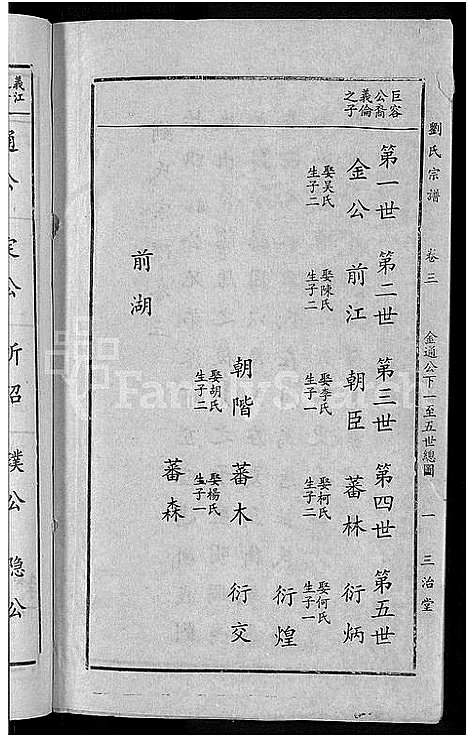 劉氏宗譜 卷三 金通公下一至五世總圖 一 三治堂
巨容
公裔
義倫
之子
第一世 第二世 第三世 第四世 第五世
金公 前江 朝臣 蕃林 衍炳
娶吳氏 生子二
娶陳氏 生子二
娶李氏 生子一
娶柯氏 生子二
娶何氏 生子一
衍煌
朝階 蕃木 衍交
娶胡氏 生子二
娶楊氏 生子一
蕃森
前湖
義江
通公 定公 析招 璞公 隐公
FamilySearch